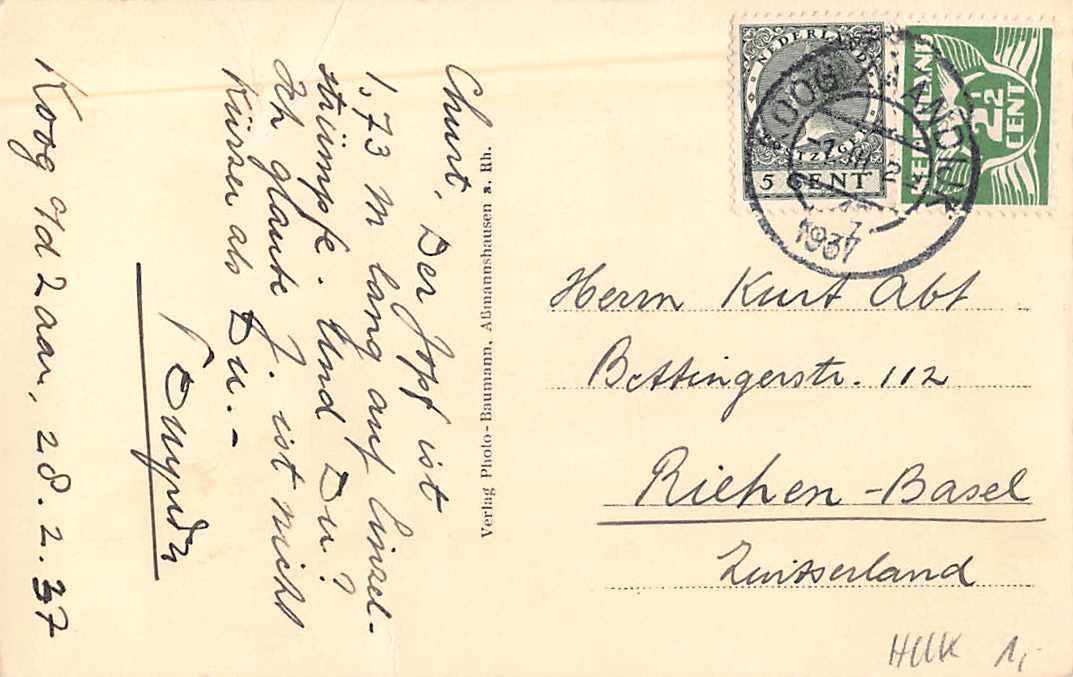 Koog a/d Zaan, 28.2.37
Chunt, Der Jopf ist
1,73 m lang auf Einzel-
strümpfe. Und Du?
Ich glaube J. ist nicht
Küsser als Du. -
Verlag Photo-Baumann, Aßmannshausen a. Rh.
NEDERLAND
5 CENT
NEDERLAND
2½
CENT
KOOG ZAANDIJK
1937
Herrn Kurt Abt
Bettingerstr. 112
Riehen-Basel
Zwitserland
HUK 1,-